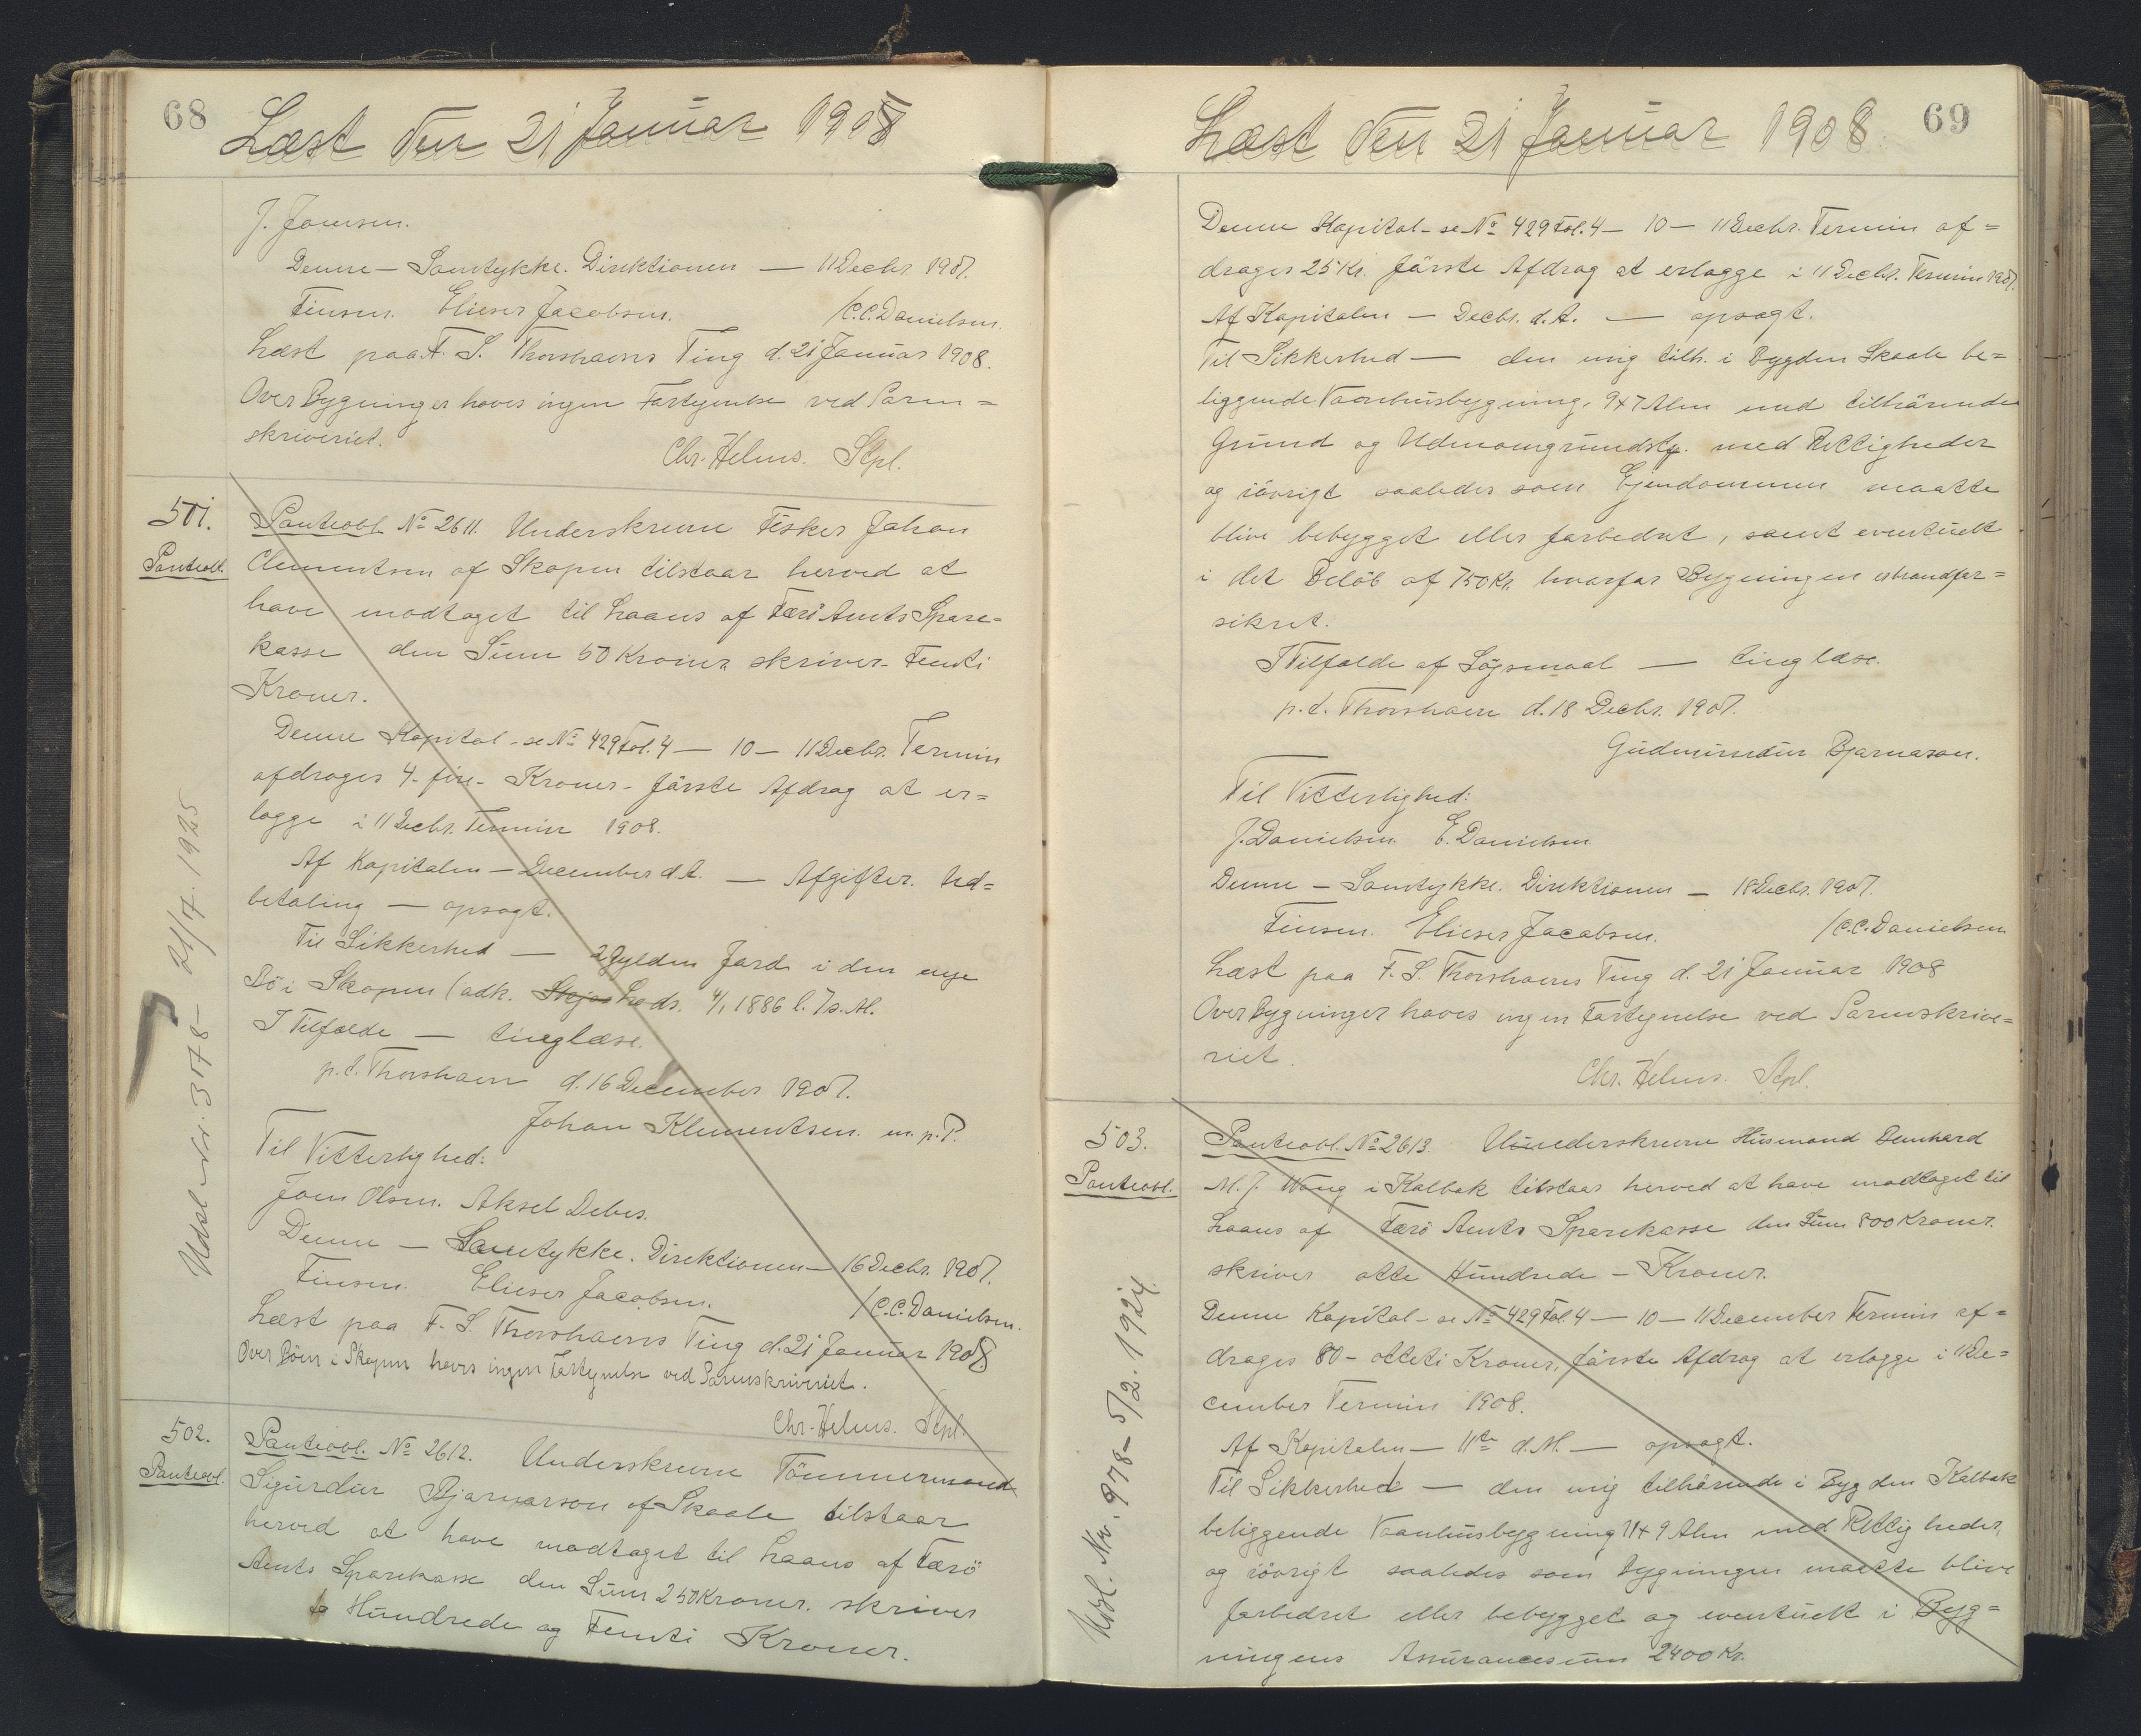 68
Læst den 21 Januar 1908
J. Joensen.
Denne — Samtykke. Direktionen — 11 Decbr. 1907.
Finsen. Elieser Jacobsen. /C.C. Danielsen.
Læst paa F. S. Thorshavns Ting d. 21 Januar 1908.
Over Bygninger haves ingen Fortegnelse ved Soren=
skriveriet.
Chr. Helms. Stpl.
501.
Panteobl.
Panteobl. No 2611. Underskrevne Fisker Johan
Clementsen af Skopen tilstaar herved at
have modtaget til Laans af Færö Amts Spare-
kasse den Sum 50 Kroner skriver - Femti
Kroner.
Denne Kapital - se No 429 Fol. 4 — 10 — 11 Decbr. Termin
afdrages 4 - fire - Kroner - förste Afdrag at er=
lægge i 11 Decbr. Termin 1908.
Af Kapitalen — December d.A. — Afgifter. Ud=
betaling — opsagt.
Til Sikkerhed — 2 Gylden Jord i den nye
Bö i Skopen (adk. Skjøs Lods. 4/1 1886 l. 7 s. M.
I Tilfælde — tinglæse.
p.t. Thorshavn d. 16 December 1907.
Johan Klementsen. m. p. P.
Til Vitterlighed:
Joen Olsen. Aksel Debes.
Denne — Samtykke. Direktionen — 16 Decbr. 1907.
Finsen. Elieser Jacobsen. /C.C. Danielsen.
Læst paa F. S. Thorshavns Ting d. 21 Januar 1908
Over Böen i Skopen haves ingen Fortegnelse ved Sorenskriveriet.
Chr. Helms. Stpl.
Udsl. Nr. 3578 - 21/7. 1925
502.
Panteobl.
Panteobl. No 2612. Underskrevne Tömmermand
Sigurdur Bjarnarson af Skaale tilstaar
herved at have modtaget til Laans af Færö
Amts Sparekasse den Sum 250 Kroner. skriver
to Hundrede og Femti Kroner.
69
Læst den 21 Januar 1908
Denne Kapital - se No 429 Fol. 4 — 10 — 11 Decbr. Termin af=
drages 25 Kr. förste Afdrag at erlægge i 11 Decbr. Termin 1907.
Af Kapitalen — Decbr. d. A. — opsagt.
Til Sikkerhed — den mig tilh. i Bygden Skaale be=
liggende Vaanhusbygning, 9x7 Alen med tilhörende
Grund og Udenomgrundsty. med Rettigheder
og iövrigt saaledes som Ejendommen maatte
blive bebygget eller forbedret, samt eventuelt
i det Belöb af 750 Kr. hvorfor Bygningen er brandfor=
sikret.
I Tilfælde af Sögsmaal — tinglæse.
p.t. Thorshavn d. 18 Decbr. 1907.
Gudmundur Bjarnason.
Til Vitterlighed:
J. Danielsen. E. Danielsen
Denne — Samtykke. Direktionen — 18 Decbr. 1907.
Finsen. Elieser Jacobsen. /C.C. Danielsen
Læst paa F. S. Thorshavns Ting d. 21 Januar 1908
Over Bygninger haves ingen Fortegnelse ved Sorenskrive=
riet.
Chr. Helms. Stpl.
503.
Panteobl.
Panteobl. No 2613. Uunederskrevne Husmand Demhard
M. J. Wang i Kalbak tilstaar herved at have modtaget til
Laans af Færö Amts Sparekasse den Sum 800 Kroner.
skriver otte Hundrede - Kroner.
Denne Kapital - se No 429 Fol. 4 — 10 — 11 December Termin af=
drages 80 - otteti Kroner, förste Afdrag at erlægge i 11 De=
cember Termin 1908.
Af Kapitalen — 11te d. M. — opsagt.
Til Sikkerhed — den mig tilhörende i Bygden Kalbak
beliggende Vaanhusbygning 11x9 Alen med Rettigheder,
og iövrigt saaledes som Bygningen maatte blive
forbedret eller bebygget og eventuelt i Byg=
ningens Assurancesum 2400 Kr.
Udsl. Nr. 978 - 5/2. 1924.